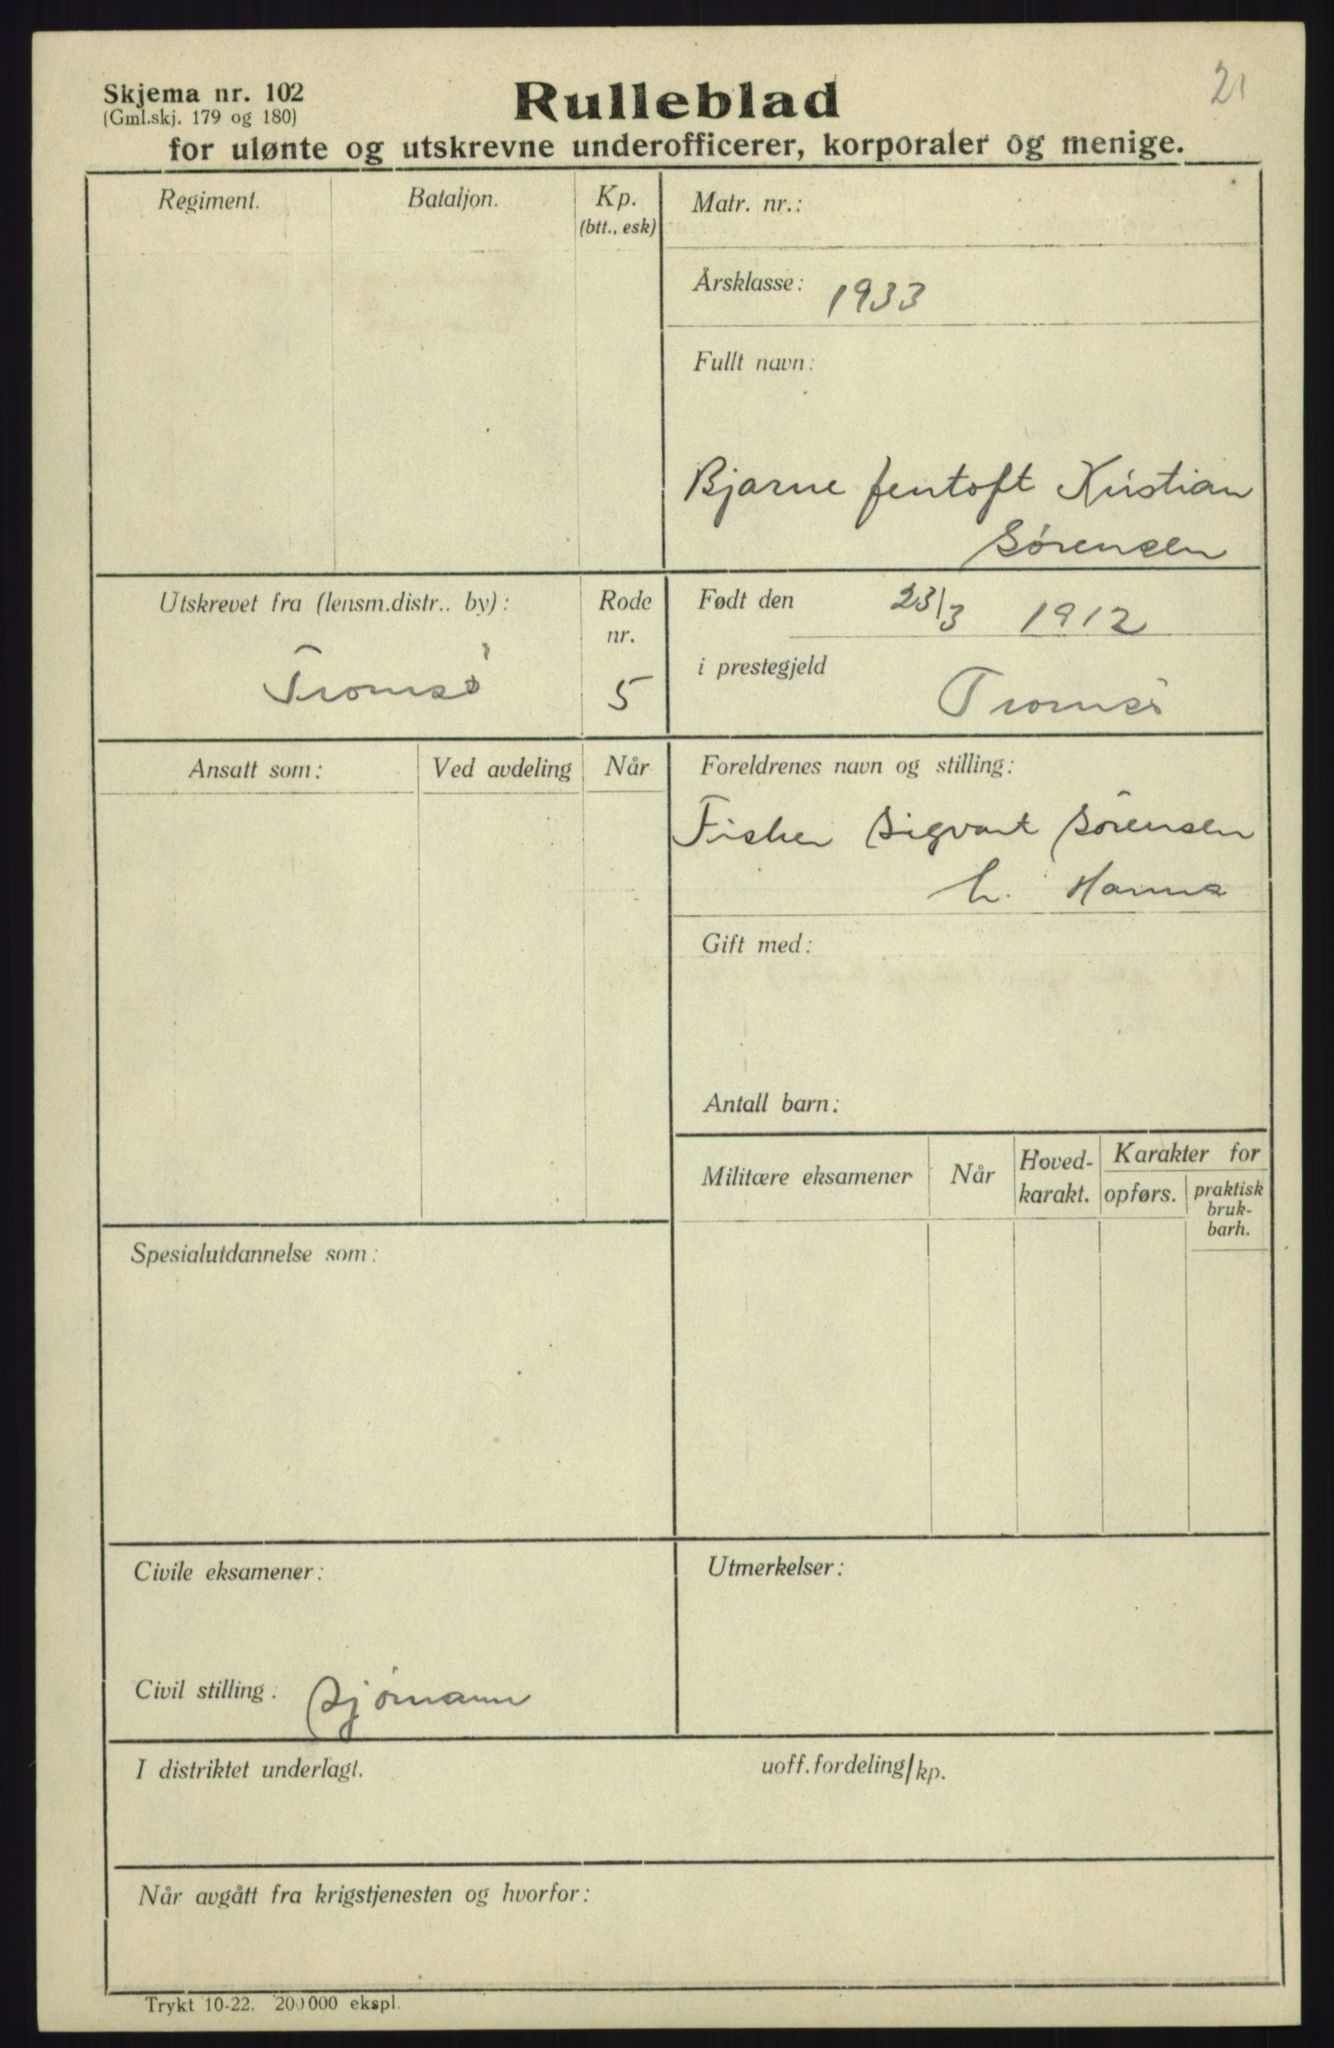 21
Skjema nr. 102
(Gml.skj. 179 og 180)
Rulleblad
for ulønte og utskrevne underofficerer, korporaler og menige.
Regiment.
Bataljon.
Kp.
(btt., esk)
Matr. nr.:
Årsklasse: 1933
Fullt navn:
Bjarne Jentoft Kristian
Sørensen
Utskrevet fra (lensm.distr.. by):
Tromsø
Rode
nr.
5
Født den 23/3 1912
i prestegjeld Tromsø
Ansatt som:
Ved avdeling
Når
Foreldrenes navn og stilling:
Fisker Sigvart Sørensen
h. Hanna
Gift med:
Antall barn:
Militære eksamener
Når
Hoved-
karakt.
Karakter for
opførs.
praktisk
bruk-
barh.
Spesialutdannelse som:
Civile eksamener:
Civil stilling: Sjømann
Utmerkelser:
I distriktet underlagt.
uoff.fordeling/kp.
Når avgått fra krigstjenesten og hvorfor:
Trykt 10-22. 200000 ekspl.